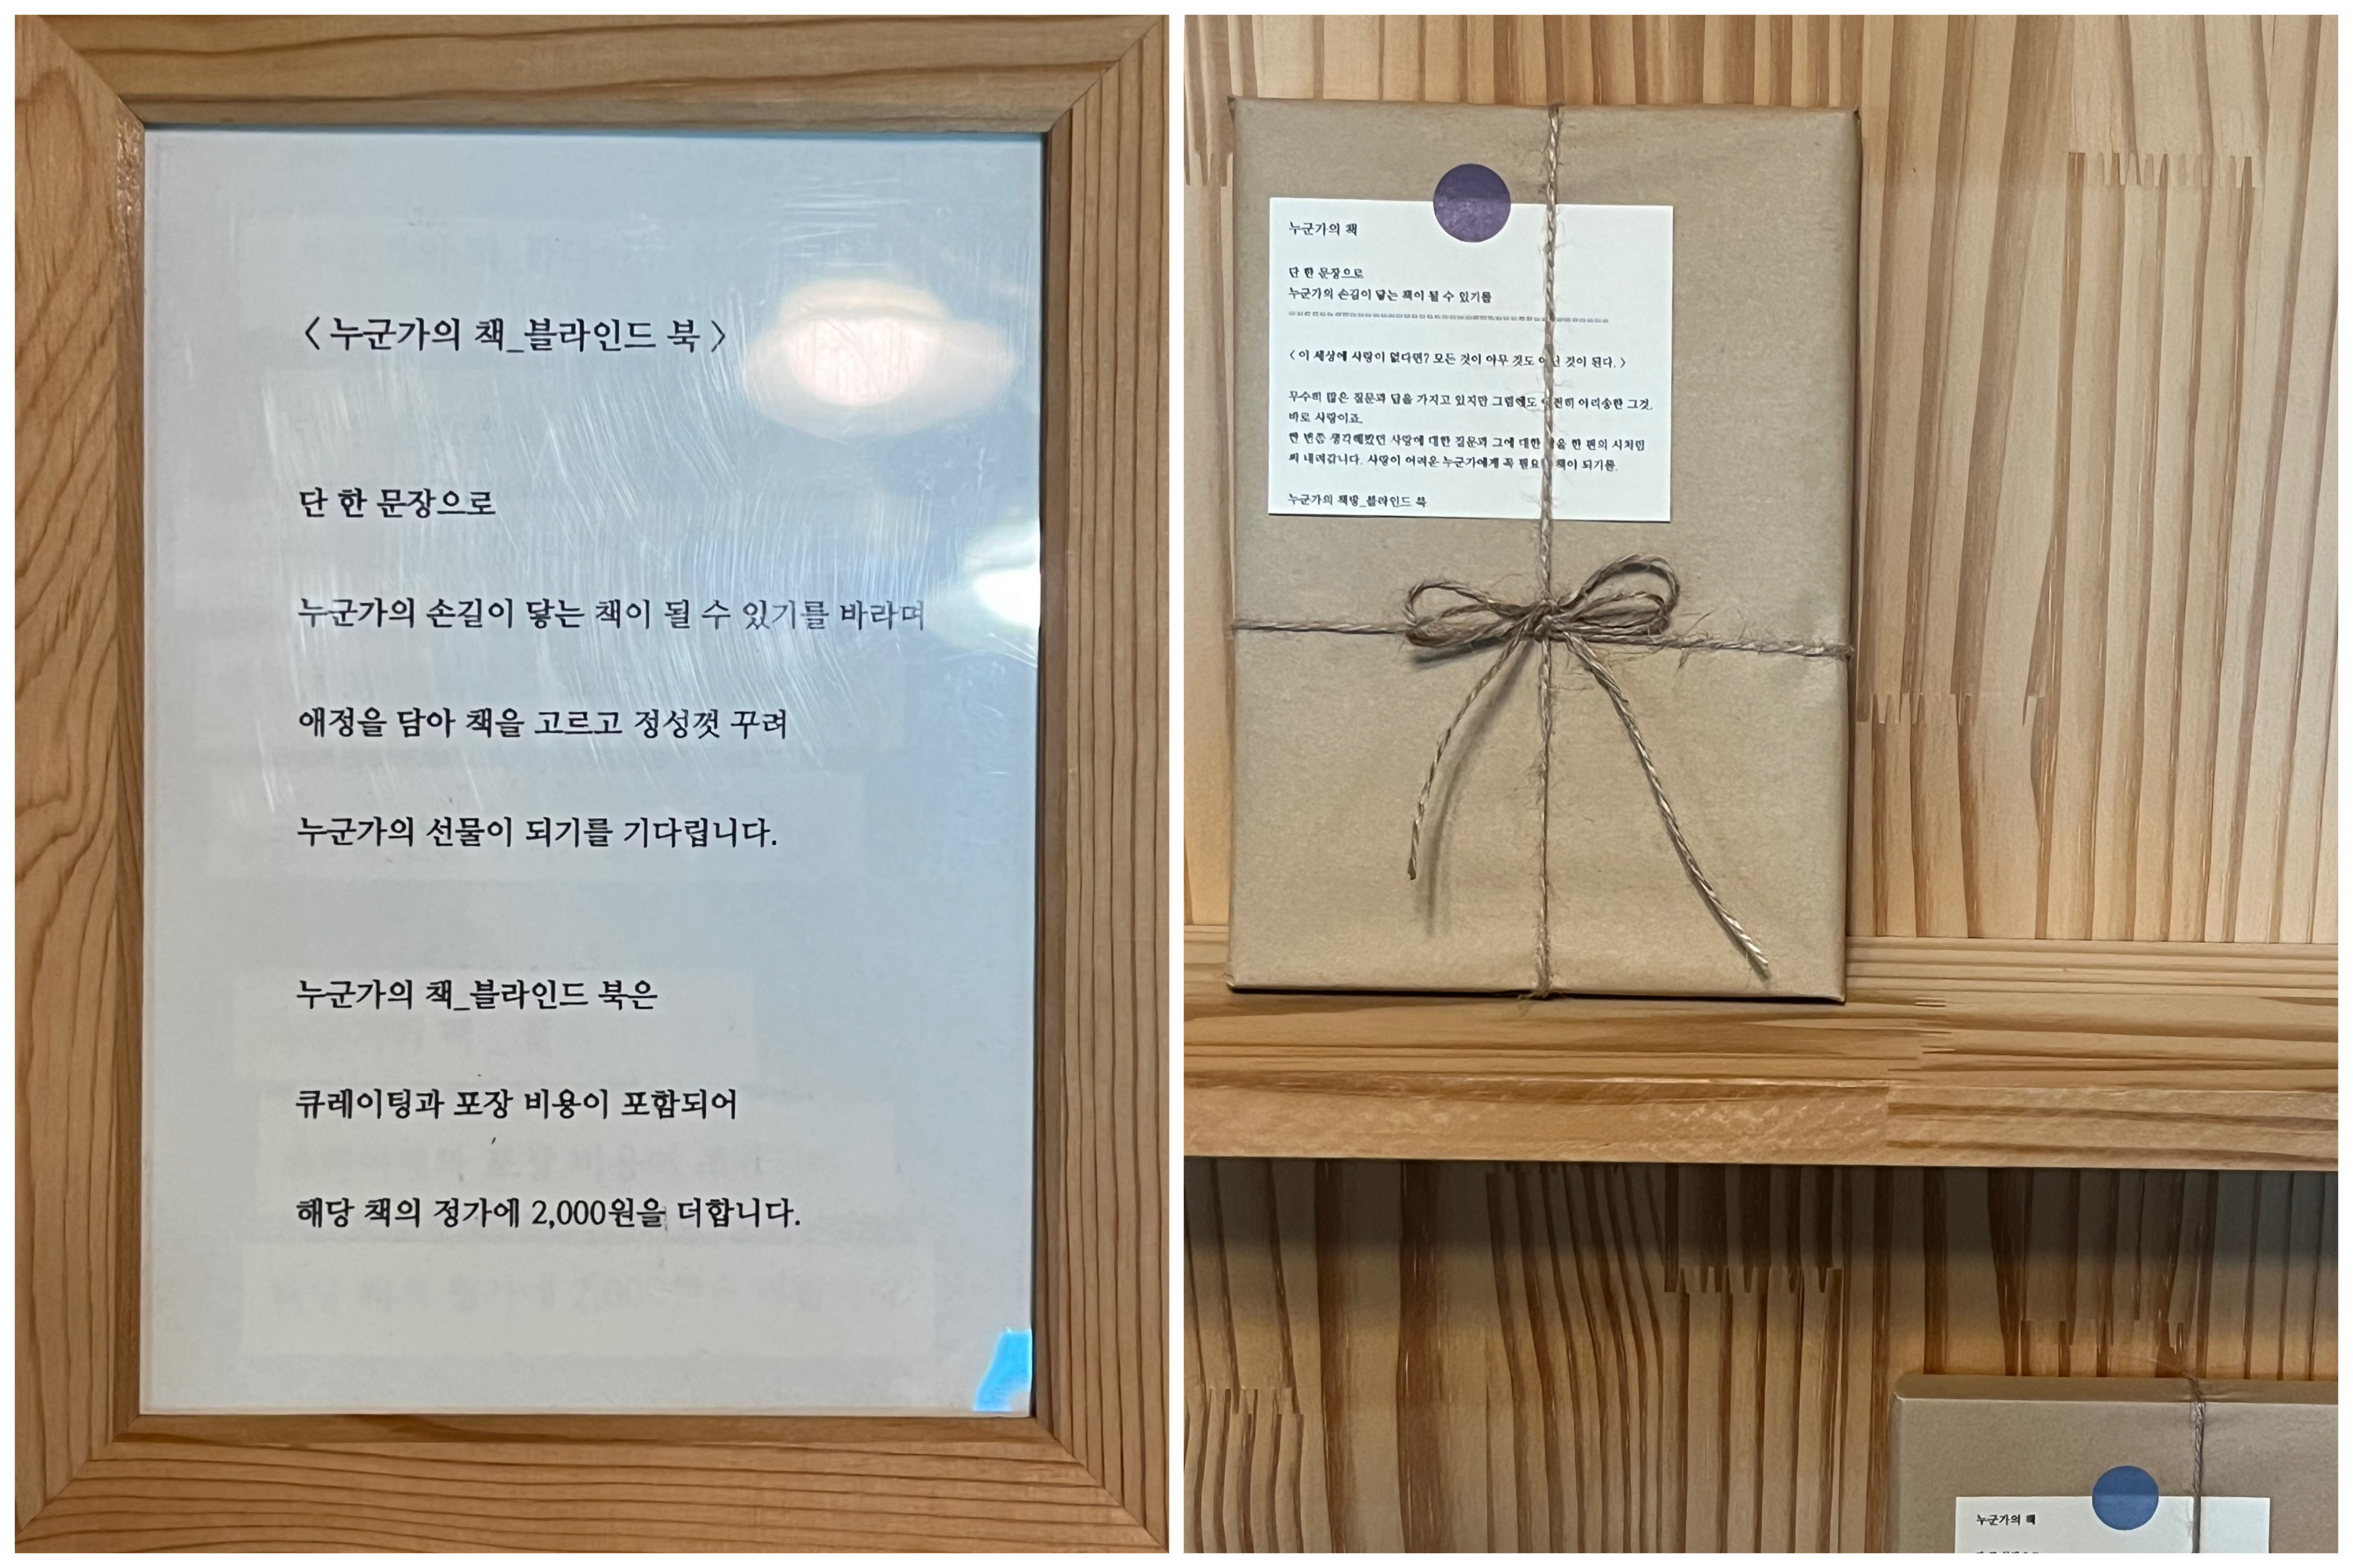 〈 누군가의 책_블라인드 북 〉
단 한 문장으로
누군가의 손길이 닿는 책이 될 수 있기를 바라며
애정을 담아 책을 고르고 정성껏 꾸려
누군가의 선물이 되기를 기다립니다.
누군가의 책_블라인드 북은
큐레이팅과 포장 비용이 포함되어
해당 책의 정가에 2,000원을 더합니다.
누군가의 책
단 한 문장으로
누군가의 손길이 닿는 책이 될 수 있기를
〈 이 세상에 사랑이 없다면? 모든 것이 아무 것도 아닌 것이 된다. 〉
무수히 많은 질문과 답을 가지고 있지만 그럼에도 여전히 아리송한 그것,
바로 사랑이죠.
한 번쯤 생각해봤던 사랑에 대한 질문과 그에 대한 답을 한 편의 시처럼
써 내려갑니다. 사랑이 어려운 누군가에게 꼭 필요한 책이 되기를.
누군가의 책방_블라인드 북
누군가의 책